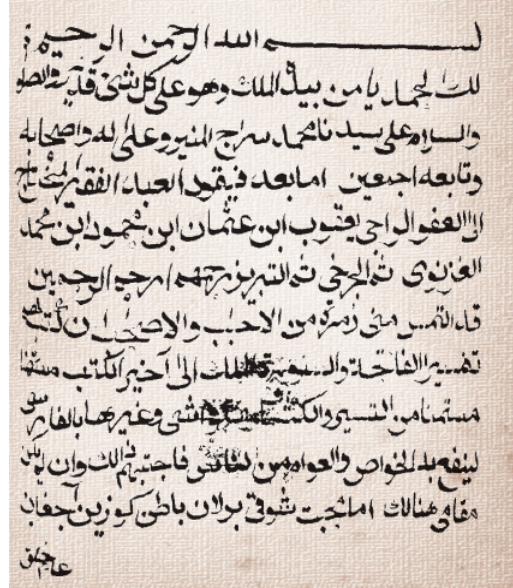 بسم الله الرحمن الرحيم
لك الحمد يا من بيده الملك وهو على كل شئ قدير والصلوة
والسلام على سيدنا محمد سراج المنير وعلى اله واصحابه
وتابعه اجمعين اما بعد فيقول العبد الفقير المحتاج
الى العفو الراجى يعقوب ابن عثمان ابن محمود ابن محمد
الغزنوى ثم الجرخى ثم التبريزى رحمهم ارحم الرحمين
قد التمس منى زمرة من الاحباب والاصحاب ان
تفسير الفاتحة و الملك الى آخير الكتب
من التفسير والكتب وغيرها بالفارسى
لينفع به الخواص والعوام من الناس فاجبتهم
مقامى هنالك اما شوقى بر لان باطن كوزين